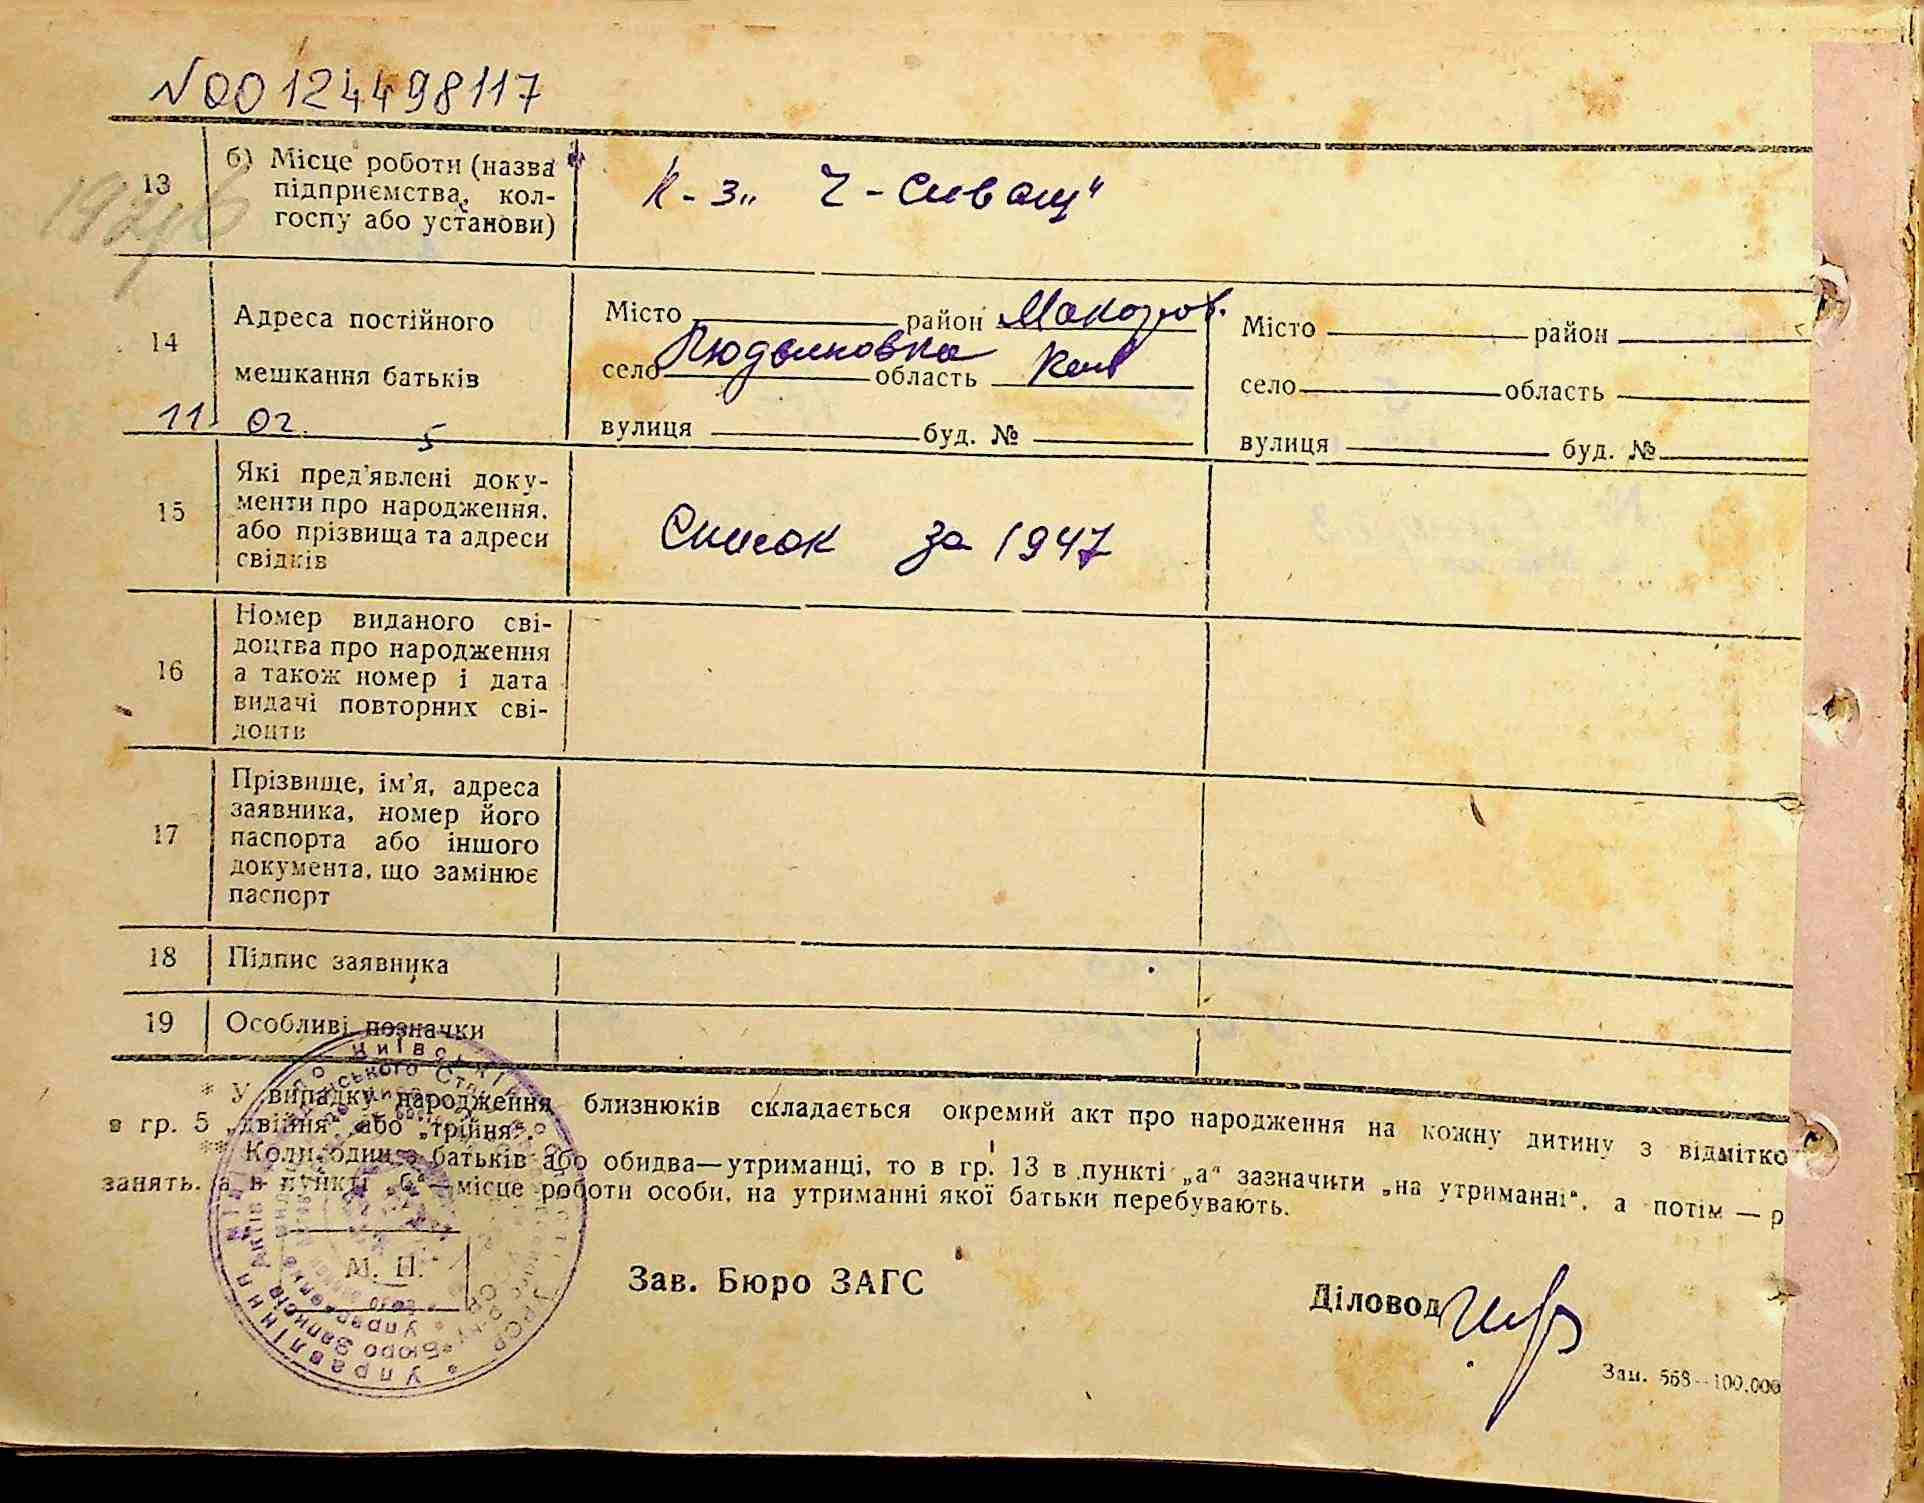 №00124498117
13
б) Місце роботи (назва
підприємства, кол-
госпу або установи)
К-з „ Ч-Сиваш"
1946
14
Адреса постійного
мешкання батьків
Місто район Макаров.
село Людвиновка область Киев
вулиця буд. №
Місто район
село область
вулиця буд. №
11 02. 5
15
Які пред'явлені доку-
менти про народження,
або прізвища та адреси
свідків
Список за 1947
16
Номер виданого сві-
доцтва про народження
а також номер і дата
видачі повторних сві-
доцтв
17
Прізвище, ім'я, адреса
заявника, номер його
паспорта або іншого
документа, що замінює
паспорт
18
Підпис заявника
19
Особливі позначки
* У випадку народження близнюків складається окремий акт про народження на кожну дитину з відмітко
в гр. 5 „двійня" або „трійня".
** Коли один з батьків або обидва—утриманці, то в гр. 13 в пункті „а" зазначити „на утриманні", а потім — р
занять, а в пункті „б"—місце роботи особи, на утриманні якої батьки перебувають.
М. П.
Зав. Бюро ЗАГС
Діловод
Зам. 568—100.000